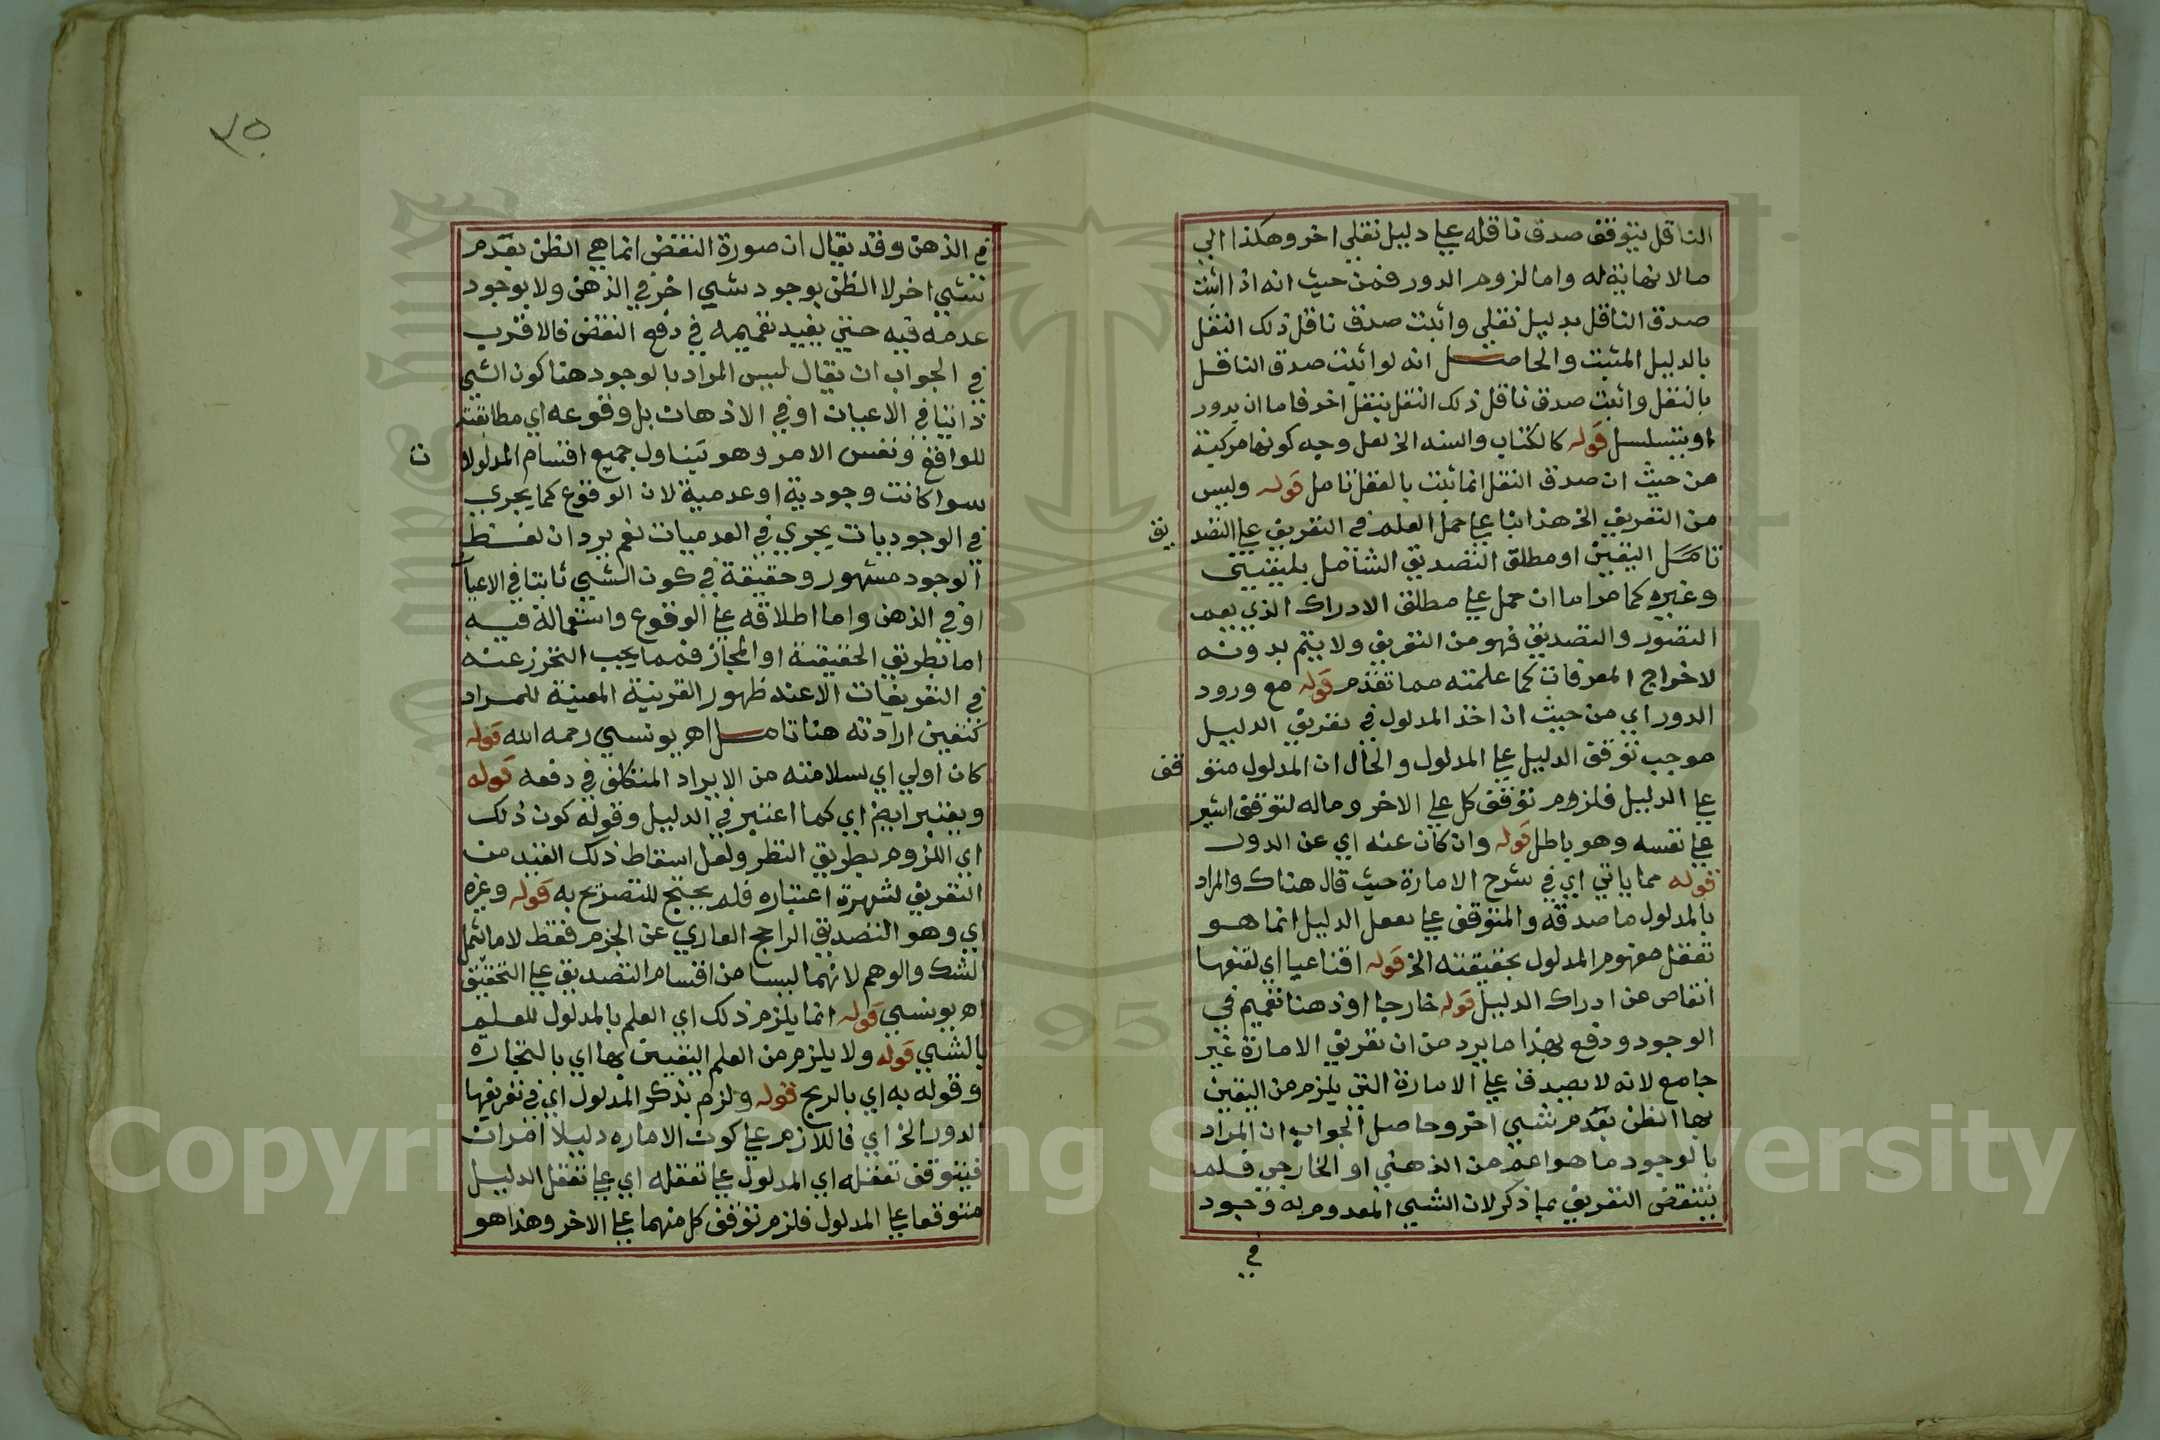 الناقل يتوقف صدق ناقله علي دليل نقلي اخر وهكذا الي
مالا نهاية له واما لزوم الدور فمن حيث انه اذا اثبت
صدق الناقل بدليل نقلي واثبت صدق ناقل ذلك النقل
بالدليل المثبت والحاصل انه لو اثبت صدق الناقل
بالنقل واثبت صدق ناقل ذلك النقل بنقل اخر فاما ان يدور
او يتسلسل قوله كالكتاب والسنه الخ لعل وجه كونها مركبة
من حيث ان صدق النقل انما يثبت بالعقل تامل قوله وليس
من التعريف الخ هذا بنا علي حمل العلم في التعريف علي التصد يق
تامل اليقين او مطلق التصديق الشامل لليقيني
وغيره كما مر اما ان حمل علي مطلق الادراك الذي يعم
التصور والتصديق فهو من التعريف ولا يتم بدونه
لاخراج المعرفات كما علمته مما تقدم قوله مع ورود
الدور اي من حيث ان اخذ المدلول في تعريف الدليل
موجب توقف الدليل علي المدلول والحال ان المدلول متو قف
علي الدليل فلزوم توقف كل علي الاخر وماله لتوقف الشي
علي نفسه وهو باطل قوله وان كان عنه اي عن الدور
قوله مما ياتي اي في شرح الامارة حيث قال هناك والمراد
بالمدلول ماصدقه والمتوقف علي تعقل الدليل انما هو
تعقل مفهوم المدلول بحقيقته الخ قوله اقناعيا اي لقنعها
انقاص عن ادراك الدليل قوله خارجا او ذهنا تعميم في
الوجود ودفع بهذا ما يرد من ان تعريف الامارة غير
جامع لانه لا يصدق علي الامارة التي يلزم من اليقين
بها الظن بعدم شي اخر وحاصل الجواب ان المراد
بالوجود ما هو اعم من الذهني او الخارجي فلم
ينتقض التعريف بما ذكر لان الشي المعدوم له وجود
في
٣٥
في الذهن وقد يقال ان صورة النقض انما هي الظن بعدم
شي اخر لا الظن بوجود شي اخر في الذهن ولا بوجود
عدمه فيه حتي يفيد تعميمه في دفع النقض فالاقرب
في الجواب ان يقال ليس المراد بالوجود هنا كون الشي
ذاتيا في الاعيان او في الاذهان بل وقوعه اي مطابقته
للواقع ونفس الامر وهو يتناول جميع اقسام المدلولا ت
سوا كانت وجودية او عدمية لان الوقوع كما يجري
في الوجوديات يجري في العدميات نعم يرد ان لفظ
الوجود مشهور وحقيقة في كون الشي ثابتا في الاعيان
او في الذهن واما اطلاقه علي الوقوع واستعماله فيه
اما بطريق الحقيقة او المجاز فمما يجب التحرز عنه
في التعريفات الا عند ظهور القرينة المعينة للمراد
كتعين ارادته هنا تامل اهـ يونسي رحمه الله قوله
كان اولي اي لسلامته من الايراد المتكلف في دفعه قوله
ويعتبر ايضا اي كما اعتبر في الدليل وقوله كون ذلك
اي اللزوم بطريق النظر ولعل اسقاط ذلك القيد من
التعريف لشهرة اعتباره فلم يحتج للتصريح به قوله وغيره
اي وهو التصديق الراجح العاري عن الجزم فقط لا ما يشمل
الشك والوهم لانهما ليسا من اقسام التصديق علي التحقيق
اهـ يونسي قوله انما يلزم ذلك اي العلم بالمدلول للعلم
بالشي قوله ولا يلزم من العلم اليقين بها اي بالتجارة
وقوله به اي بالربح قوله ولزم بذكر المدلول اي في تعريفها
الدور الخ اي فاللازم علي كون الاماره دليلا امران
فيتوقف تعقله اي المدلول علي تعقله اي علي تعقل الدليل
متوقفا علي المدلول فلزم توقف كل منهما علي الاخر وهذا هو
Copyright © King Saud University
1957